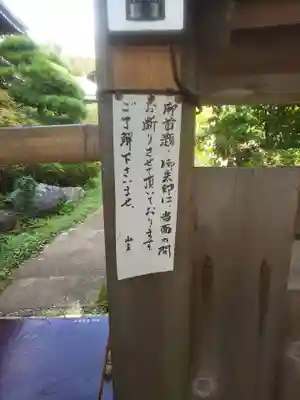 御首題・御朱印は、当面の間
お断りさせて頂いております。
ご了解下さいませ。
山主